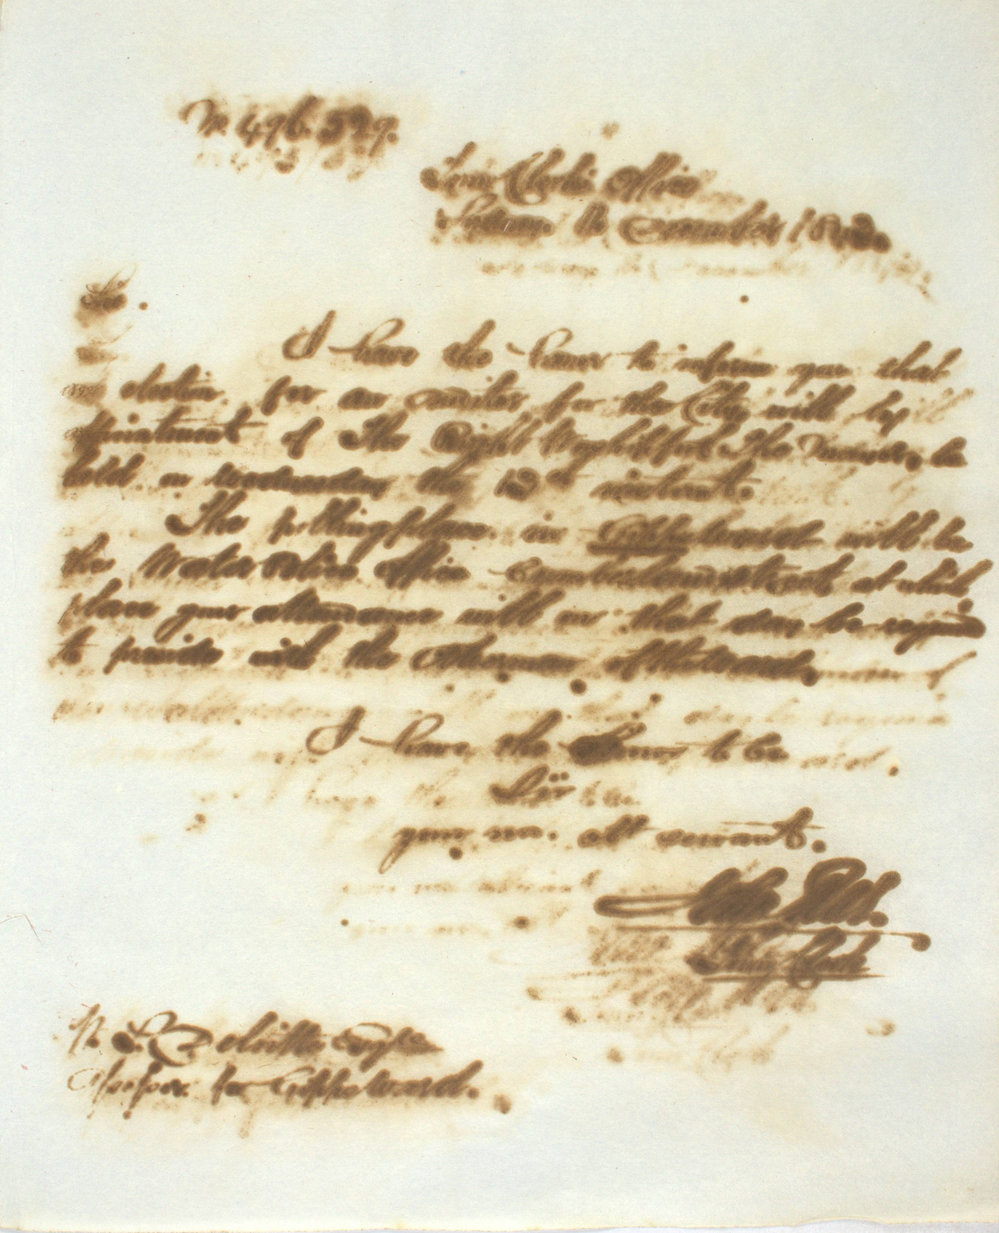 No 496. 529.
Town Clerks Office
Sydney December 184
Sir.
I have the honor to inform you that
election for an auditor for the City will by
appointment of The Right Worshipful The Mayor, be
held on Wednesday the 13th instant.
The polling place in Gipps Ward will be
the Water Police Office Cumberland Street at which
place your attendance will on that day be required
to preside with the Alderman of that Ward.
I have the Honor to be
Sir
your mo. obt servant.
Town Clerk
To Esqre
Assessor for Gipps Ward.